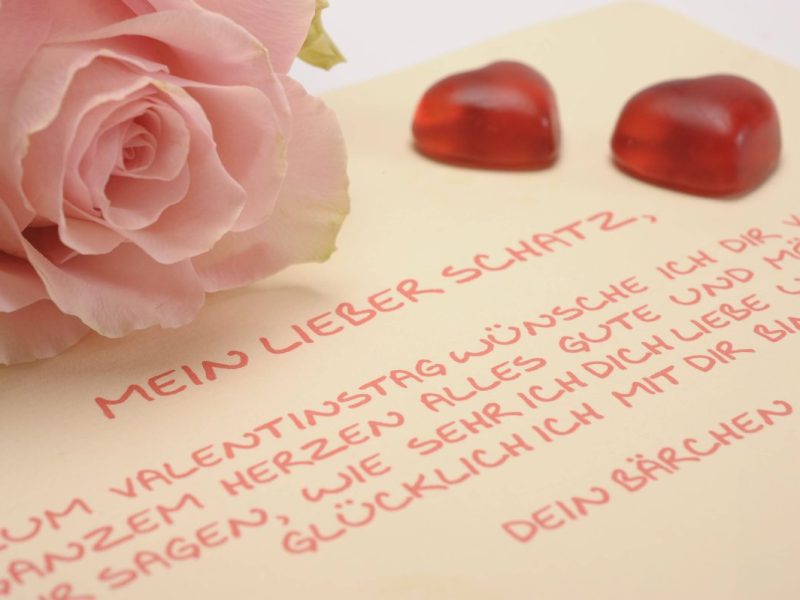 MEIN LIEBER SCHATZ,
ZUM VALENTINSTAG WÜNSCHE ICH DIR
GANZEM HERZEN ALLES GUTE UND
SAGEN, WIE SEHR ICH DICH LIEBE
GLÜCKLICH ICH MIT DIR BIN
DEIN BÄRCHEN